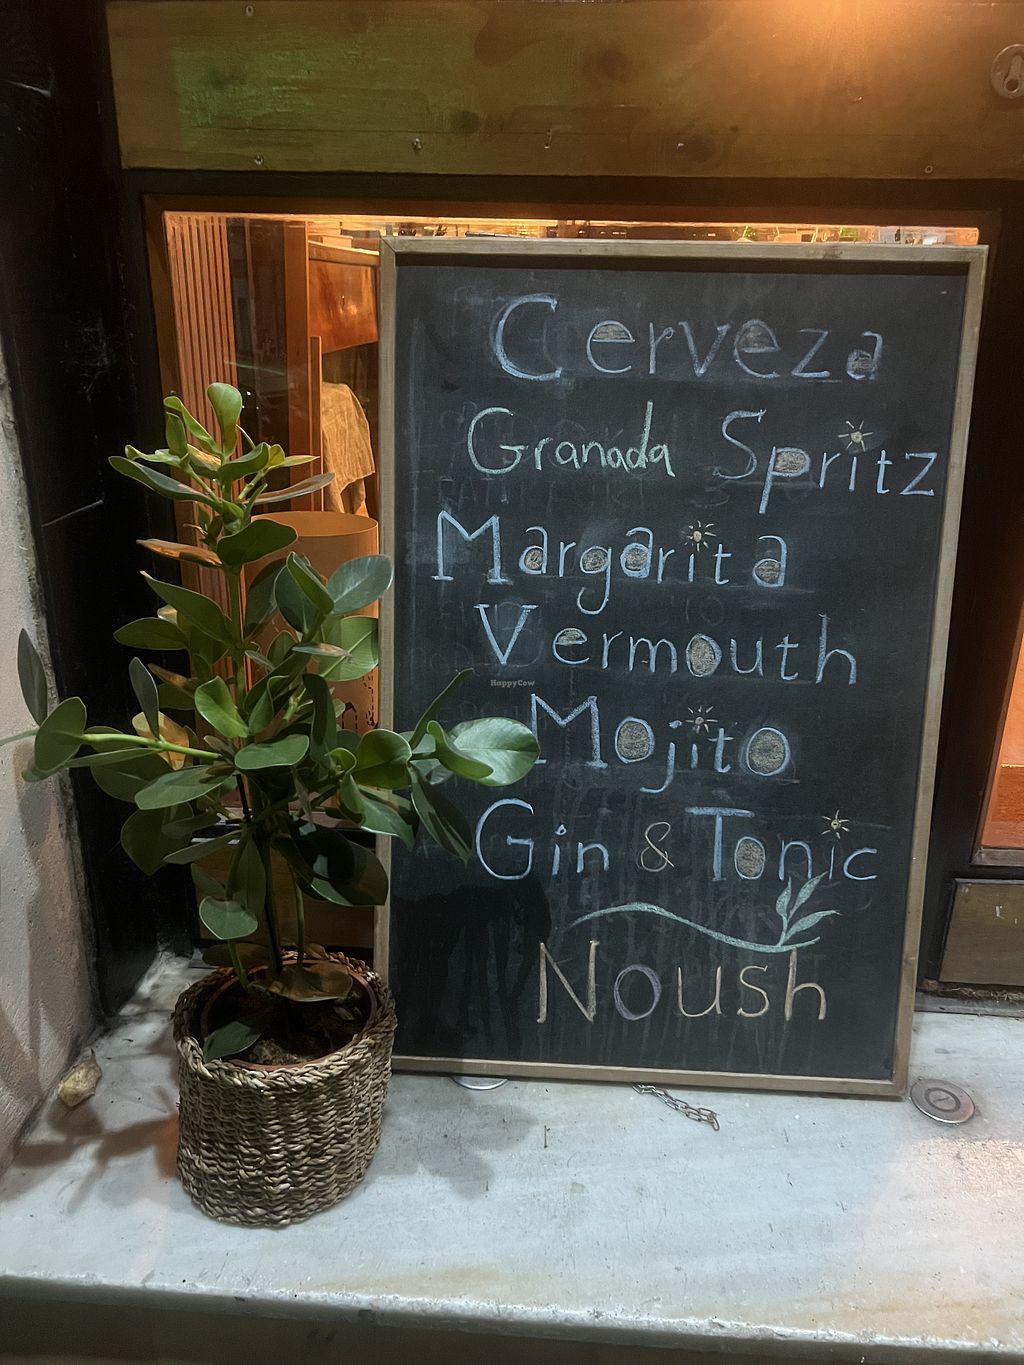 Cerveza
Granada Spritz
Margarita
Vermouth
HappyCow
Mojito
Gin & Tonic
Noush